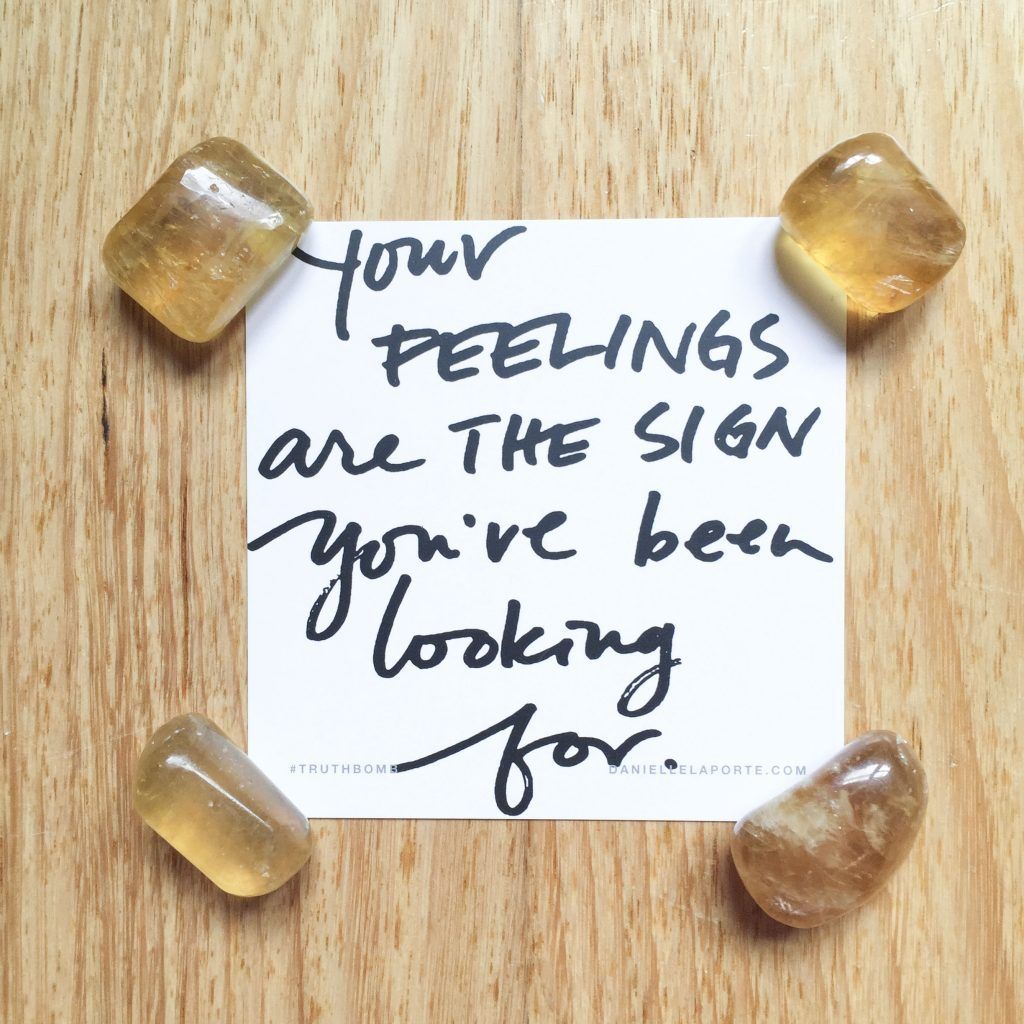 your
FEELINGS
are THE SIGN
you've been
looking
for.
#TRUTHBOMB DANIELLELAPORTE.COM